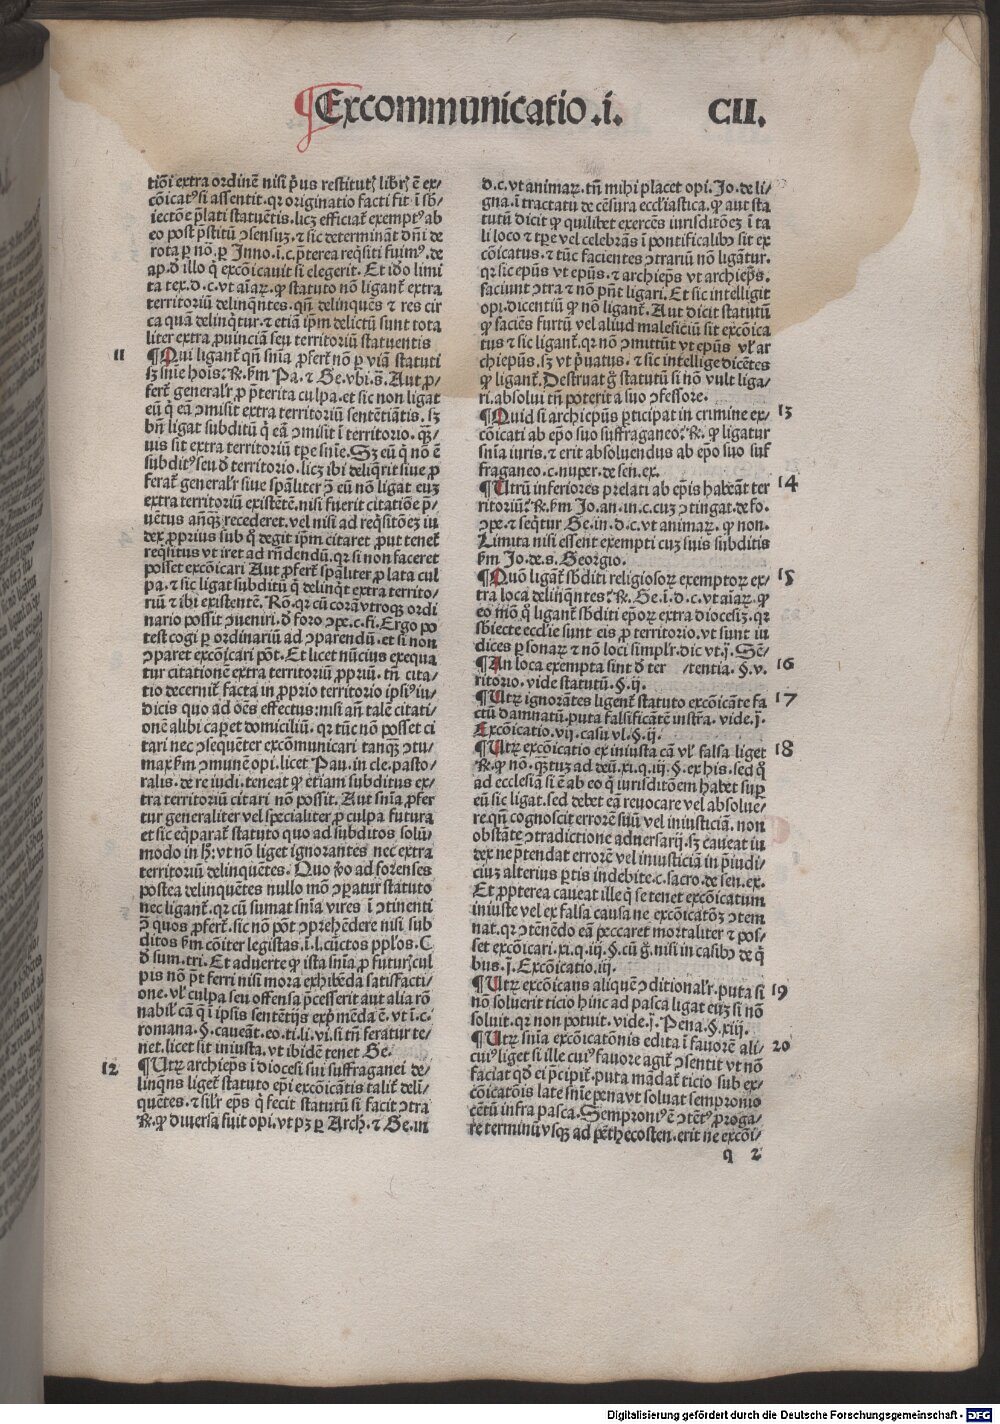 ¶Excommunicatio .i. CII.
tiõi extra ordinẽ nisi p̃us restitutꝭ librꝭ ẽ ex⸗
cõicatꝰ si assentit. qꝛ originatio facti fit ĩ sb̃⸗
iectõe p̃lati statuẽtis. licꝫ efficiat̃ exemptꝰ ab
eo post p̃stitũ ↄsensuꝫ. ⁊ sic determinãt dñi de
rota ꝑ nõ. ꝑ Inno. i. c. p̃terea req̃siti fuimꝰ. de
ap. đ illo q̃ excõicauit si elegerit. Et iđo limi
ta tex. đ. c. vt aĩaꝝ. ꝙ statuto nõ ligant̃ extra
territoriũ delinq̃ntes. qñ delinquẽs ⁊ res cir
ca quã delinq̃tur. ⁊ etiã ip̃m delictũ sunt tota
liter extra ꝓuinciã seu territoriũ statuentis
11 ¶Qui ligant̃ qñ snĩa ꝓfert̃ nõ ꝑ viã statuti
sꝫ snĩe hoĩs: ℞. ẜm Pa. ⁊ Ge. vbi. s̃. Aut ꝓ⸗
fert̃ general̃r ꝓ p̃terita culpa. et sic non ligat
eũ q̃ eã ↄmisit extra territoriũ sentẽtiãtis. sꝫ
bñ ligat subditũ q̃ eã ↄmisit ĩ territorio. qᷓꝫ⸗
uis sit extra territoriũ tꝑe snĩe. Sꝫ eũ q̃ nõ ẽ
subditꝰ seu đ territorio. licꝫ ibi deliq̃rit siue ꝓ
ferat̃ general̃r siue sp̃aliter ↄ̃ eũ nõ ligat euꝫ
extra territoriũ existẽtẽ. nisi fuerit citatiõe p̃⸗
uẽtus anq̃ꝫ recederet. vel nisi ad req̃sitõeꝫ iu
dex ꝓprius sub q̃ degit ip̃m citaret ꝓut tenet̃
req̃situs vt iret ad rñdendũ. qꝛ si non faceret
posset excõicari Aut ꝓfert̃ sp̃aliter ꝓ lata cul
pa. ⁊ sic ligat subditũ q̃ delinq̃t extra territo⸗
riũ ⁊ ibi existentẽ. Rõ. qꝛ cũ corã vtroqꝫ ordi
nario possit ↄueniri. đ foro ↄpe. c. fi. Ergo po
test cogi ꝑ ordinariũ ad ↄparendũ. et si non
ↄparet excõicari põt. Et licet nũcius exequa
tur citationẽ extra territoriũ ꝓpriũ. tñ cita⸗
tio decernit̃ facta in ꝓprio territorio ipsiꝰ iu⸗
dicis quo ad oẽs effectus: nisi añ talẽ citati⸗
onẽ alibi caꝑet domiciliũ. qꝛ tũc nõ posset ci
tari nec ↄsequẽter excõmunicari tanqᷓꝫ ↄtu⸗
max ẜm ↄmunẽ opi. licet Pau. in cle. pasto⸗
ralis. de re iudi. teneat ꝙ etiam subditus ex⸗
tra territoriũ citari nõ possit. Aut snĩa ꝓfer
tur generaliter vel specialiter ꝓ culpa futura
et sic eq̃parat̃ statuto quo ad subditos solũ⸗
modo in hꝭ: vt nõ liget ignorantes nec extra
territoriũ delinquẽtes. Quo ṽo ad forenses
postea delinquẽtes nullo mõ ↄparatur statuto
nec ligant̃. qꝛ cũ sumat snĩa vires ĩ ↄtinenti
ↄ̃ quos ꝓfert̃. sic nõ põt ↄprehẽdere nisi sub
ditos ẜm cõiter legistas. ĩ. l. cũctos pp̃los. C
đ sum. tri. Et aduerte ꝙ ista snĩa ꝓ futurꝭ cul
pis nõ p̃t ferri nisi mora exhibẽda satisfacti⸗
one. vl̃ culpa seu offensa p̃cesserit aut alia rõ
nabil̃ cã q̃ ĩ ipsis sentẽtijs exp̃mẽda ẽ. vt ĩ. c.
romana. §. caueãt. eo. ti. li. vi. si tñ feratur te⸗
net. licet sit iniusta. vt ibidẽ tenet Ge.
12 ¶Utꝝ archiep̃s ĩ diocesi sui suffraganei de⸗
linq̃ns liget̃ statuto ep̃i excõicãtis talit̃ deli⸗
quẽtes. ⁊ sil̃r ep̃s q̃ fecit statutũ si facit ↄtra
℞. ꝙ diuersa fuit opi. vt pꝫ ꝑ Arch. ⁊ Ge. in
đ. c. vt animaꝝ. tñ mihi placet opi. Jo. de li⸗
gna. ĩ tractatu de cẽsura eccl̃iastica. ꝙ aut sta
tutũ dicit ꝙ quilibet exercẽs iurisditõeꝫ ĩ ta
li loco ⁊ tꝑe vel celebrãs ĩ pontificalibꝰ sit ex
cõicatus. ⁊ tũc facientes ↄtrariũ nõ ligãtur.
qꝛ sic ep̃us vt ep̃us. ⁊ archiep̃s vt archiep̃s.
faciunt ↄtra ⁊ nõ pñt ligari. Et sic intelligit
opi. dicentiũ ꝙ nõ ligant̃. Aut dicit statutũ
ꝙ faciẽs furtũ vel aliud maleficiũ sit excõica
tus ⁊ sic ligant̃. qꝛ nõ ↄmittũt vt ep̃us vl̃ ar
chiep̃us. sꝫ vt p̃uatus. ⁊ sic intellige dicẽtes
ꝙ ligant̃. Destruat g̃ statutũ si nõ vult liga⸗
ri. absolui tñ poterit a suo ↄfessore.
¶Quid si archiep̃us ꝑticipat in crimine ex⸗ 13
cõicati ab ep̃o suo suffraganeo: ℞. ꝙ ligatur
snĩa iuris. ⁊ erit absoluendus ab ep̃o suo suf
fraganeo. c. nuper. de sen. ex.
¶Utrũ inferiores prelati ab ep̃is habeãt ter 14
ritoriũ: ℞. ẜm Jo. an. in. c. cuꝫ ↄtingat. de fo.
ↄpe. ⁊ seq̃tur Ge. in. đ. c. vt animaꝝ. ꝙ non.
Limita nisi essent exempti cuꝫ suis subditis
ẜm Jo. de. s. Georgio.
¶Quõ ligãt̃ sb̃diti religiosoꝝ exemptoꝝ ex⸗ 15
tra loca delinq̃ntes: ℞. Ge. ĩ. đ. c. vt aĩaꝝ. ꝙ
eo mõ q̃ ligant̃ sb̃diti ep̃oꝝ extra diocesiꝫ. qꝛ
sb̃iecte eccl̃ie sunt eis ꝓ territorio. vt sunt iu
dices ꝑsonaꝝ ⁊ nõ loci simpl̃r. dic vt. j̃. Sẽ⸗
¶An loca exempta sint đ ter /tentia. §. v. 16
ritorio. vide statutũ. §. ij.
¶Utꝝ ignorãtes ligent̃ statuto excõicãte fa 17
ctũ damnatũ. puta falsificãtẽ instr̃a. vide. j̃.
Excõicatio. vij. casu vl. §. ij.
¶Utꝝ excõicatio ex iniusta cã vl̃ falsa liget 18
℞. ꝙ nõ. qᷓꝫtuꝫ ad deũ. xi. q. iij. §. ex his. sed q̃
ad ecclesiã si ẽ ab eo q̃ iurisditõem habet suꝑ
eũ sic ligat. sed debet eã reuocare vel absolue⸗
re. qñ cognoscit errorẽ suũ vel iniusticiã. non
obstãte ↄtradictione aduersarij. sꝫ caueat iu
dex ne p̃tendat errorẽ vel iniusticiã in p̃iudi⸗
ciuꝫ alterius ꝑtis indebite. c. sacro. de sen. ex.
Et ꝓpterea caueat ille q̃ se tenet excõicatum
iniuste vel ex falsa causa ne excõicatõꝫ ↄtem
nat. qꝛ ↄtẽnẽdo eã peccaret mortaliter ⁊ pos⸗
set excõicari. xi. q. iij. §. cũ g̃. nisi in casibꝰ de q̃
bus. j̃. Excõicatio. iij.
¶Utꝝ excõicans aliquem ↄditional̃r. puta si 19
nõ soluerit ticio hinc ad pasca ligat euꝫ si nõ
soluit. qꝛ non potuit. vide. j̃. Pena. §. xiij.
¶Utꝝ snĩa excõicatõnis edita ĩ fauorẽ ali⸗ 20
cuiꝰ liget si ille cuiꝰ fauore agit̃ ↄsentit vt nõ
faciat qđ ei p̃cipit̃. puta mãdat̃ ticio sub ex⸗
cõicatõis late snĩe pena vt soluat sempronio
cẽtũ infra pasca. Semproniꝰ ẽ ↄtẽtꝰ ꝓroga⸗
re terminũ vsqꝫ ad pẽthecosten. erit ne excõi⸗
q 2
Digitalisierung gefördert durch die Deutsche Forschungsgemeinschaft - DFG